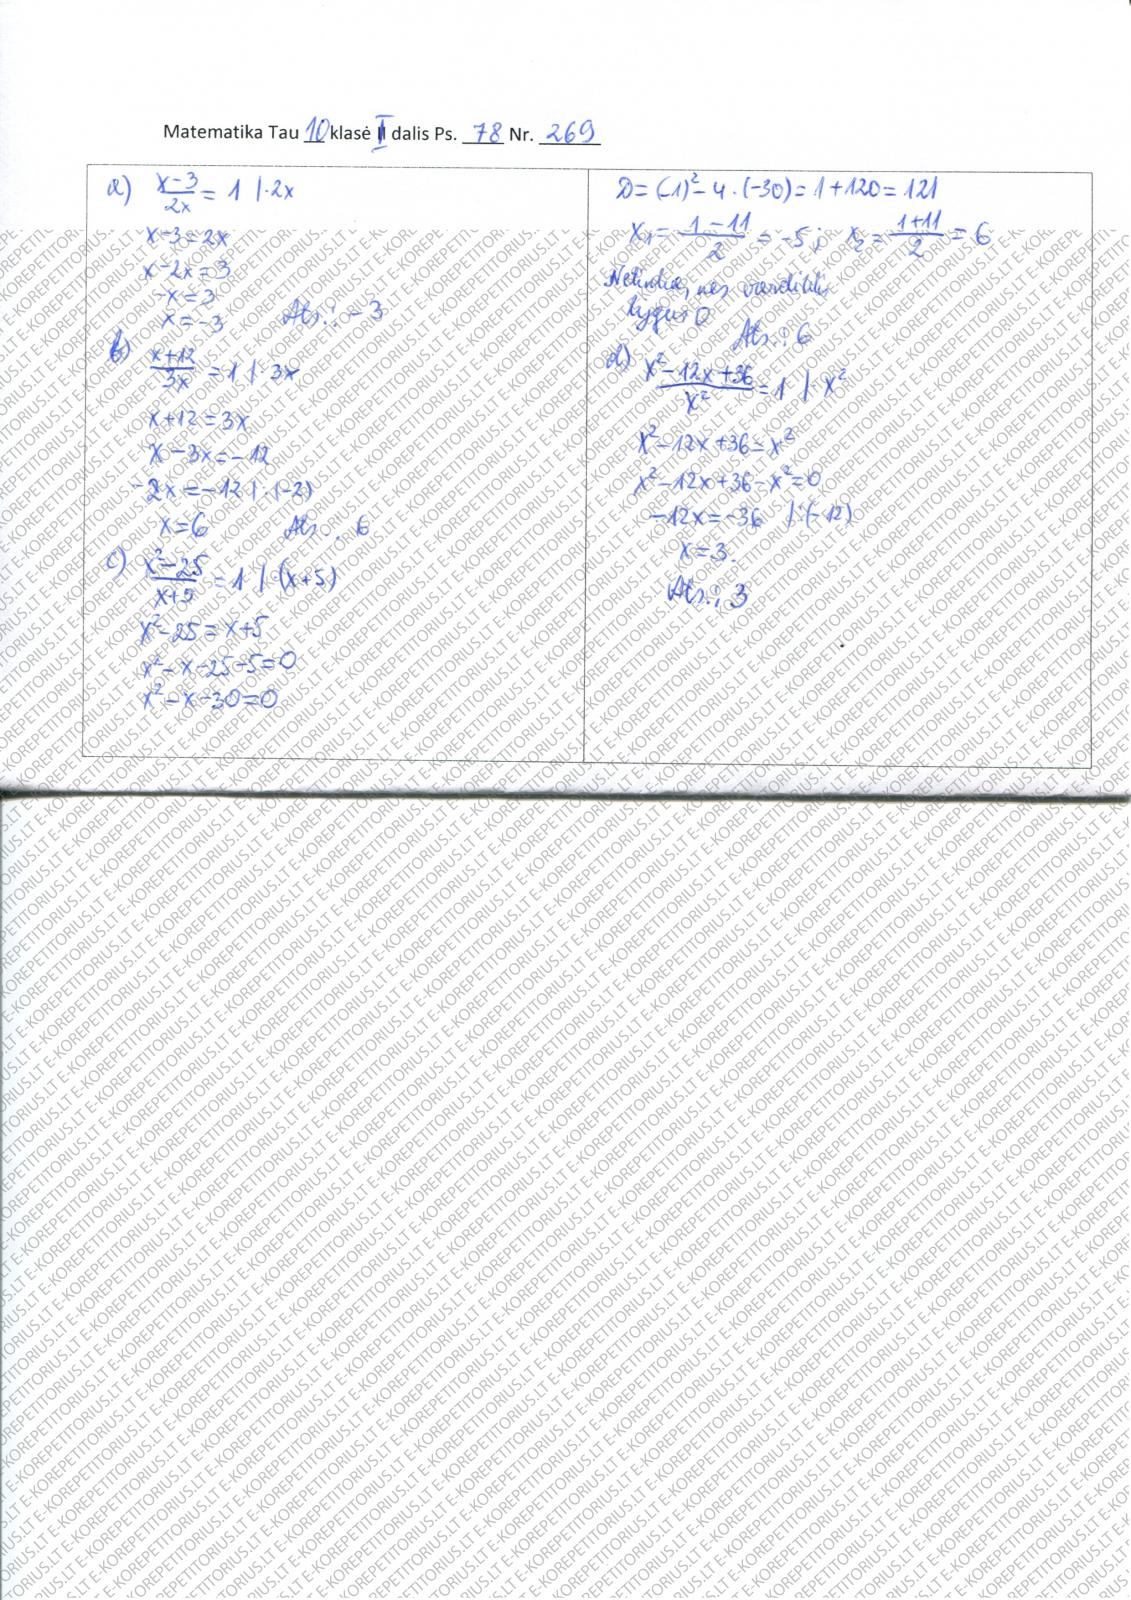 Matematika Tau 10 klasė I dalis Ps. 78 Nr. 269
a) x-3/2x = 1 | ·2x
x-3=2x
x-2x=3
-x=3
x=-3 Ats.: -3
b) x+12/3x = 1 | ·3x
x+12=3x
x-3x=-12
-2x=-12 | :(-2)
x=6 Ats.: 6
c) x²-25/x+5 = 1 | ·(x+5)
x²-25=x+5
x²-x-25-5=0
x²-x-30=0
D=(-1)²-4·(-30)=1+120=121
x₁=1-11/2=-5; x₂=1+11/2=6
Netinka, nes vardiklis
lygus 0
Ats.: 6
d) x²-12x+36/x²=1 | ·x²
x²-12x+36=x²
x²-12x+36-x²=0
-12x=-36 | :(-12)
x=3.
Ats.: 3
E-KOREPETITORIUS.LT